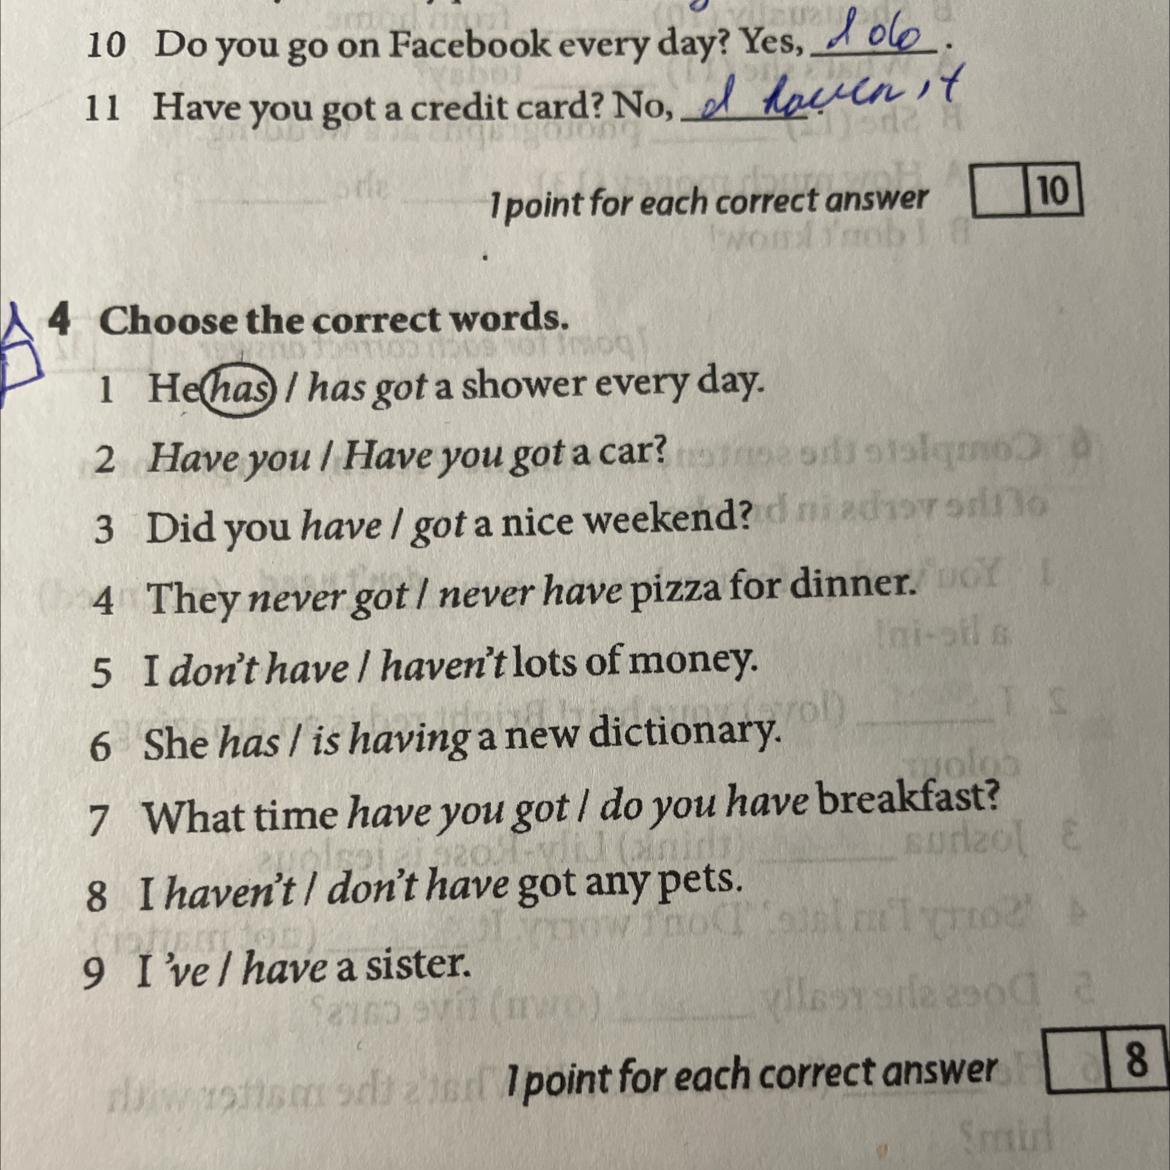 10 Do you go on Facebook every day? Yes, I do.
11 Have you got a credit card? No, I haven't.
1 point for each correct answer 10
4 Choose the correct words.
1 He has / has got a shower every day.
2 Have you / Have you got a car?
3 Did you have / got a nice weekend?
4 They never got / never have pizza for dinner.
5 I don't have / haven't lots of money.
6 She has / is having a new dictionary.
7 What time have you got / do you have breakfast?
8 I haven't / don't have got any pets.
9 I 've / have a sister.
1 point for each correct answer 8